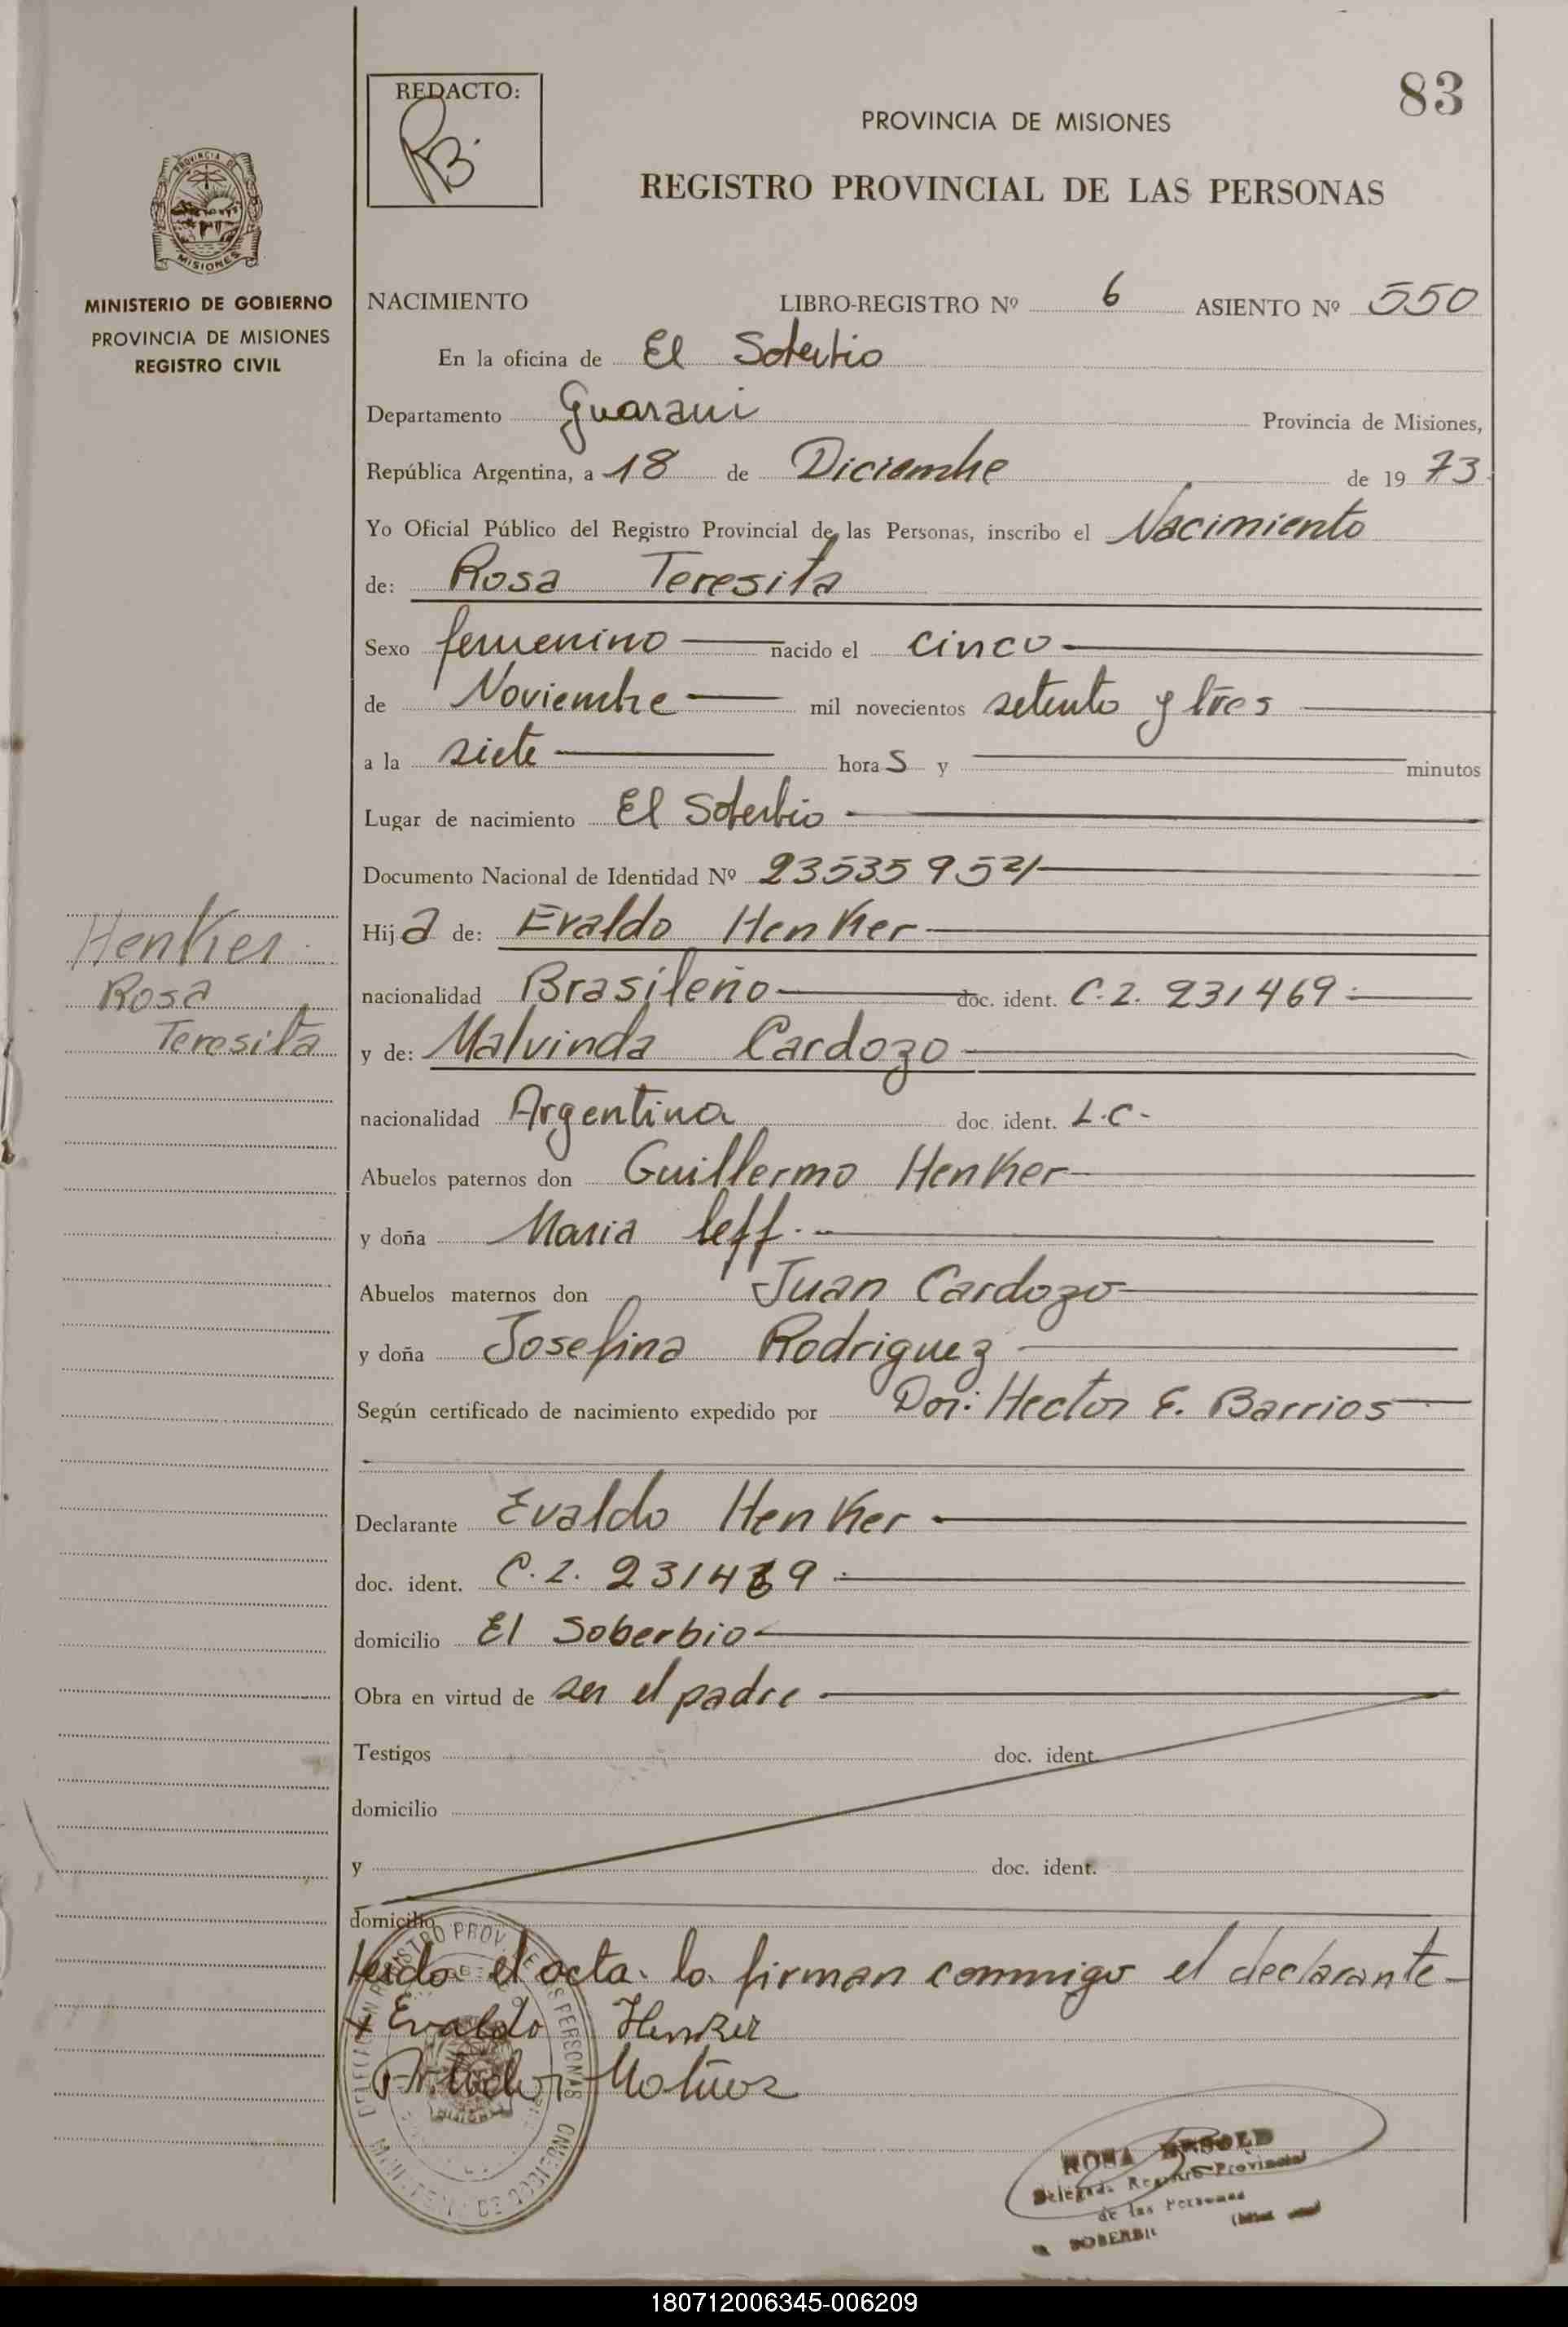 83
REDACTO:
PROVINCIA DE MISIONES
REGISTRO PROVINCIAL DE LAS PERSONAS
PROVINCIA DE
MISIONES
MINISTERIO DE GOBIERNO
PROVINCIA DE MISIONES
REGISTRO CIVIL
NACIMIENTO LIBRO-REGISTRO Nº 6 ASIENTO Nº 550
En la oficina de El Soberbio
Departamento Guarani Provincia de Misiones,
República Argentina, a 18 de Diciembre de 19 73
Yo Oficial Público del Registro Provincial de las Personas, inscribo el Nacimiento
de: Rosa Teresita
Sexo femenino nacido el cinco
de Noviembre mil novecientos setenta y tres
a la siete hora s y minutos
Lugar de nacimiento El Soberbio
Documento Nacional de Identidad Nº 23535952
Hij a de: Evaldo Henker
nacionalidad Brasileño doc. ident. C.I. 231469
y de: Malvinda Cardozo
nacionalidad Argentina doc. ident. L.C-
Abuelos paternos don Guillermo Henker
y doña Maria Leff
Abuelos maternos don Juan Cardozo
y doña Josefina Rodriguez
Según certificado de nacimiento expedido por Dor: Hector E. Barrios
Declarante Evaldo Henker
doc. ident. C.I. 231469
domicilio El Soberbio
Obra en virtud de ser el padre
Testigos doc. ident.
domicilio
y doc. ident.
domicilio
Leida el acta la firman conmigo el declarante
x Evaldo Henker
Henker
Rosa
Teresita
ROSA
Delegada Registro Provincial
de las Personas
SOBERBIO
180712006345-006209